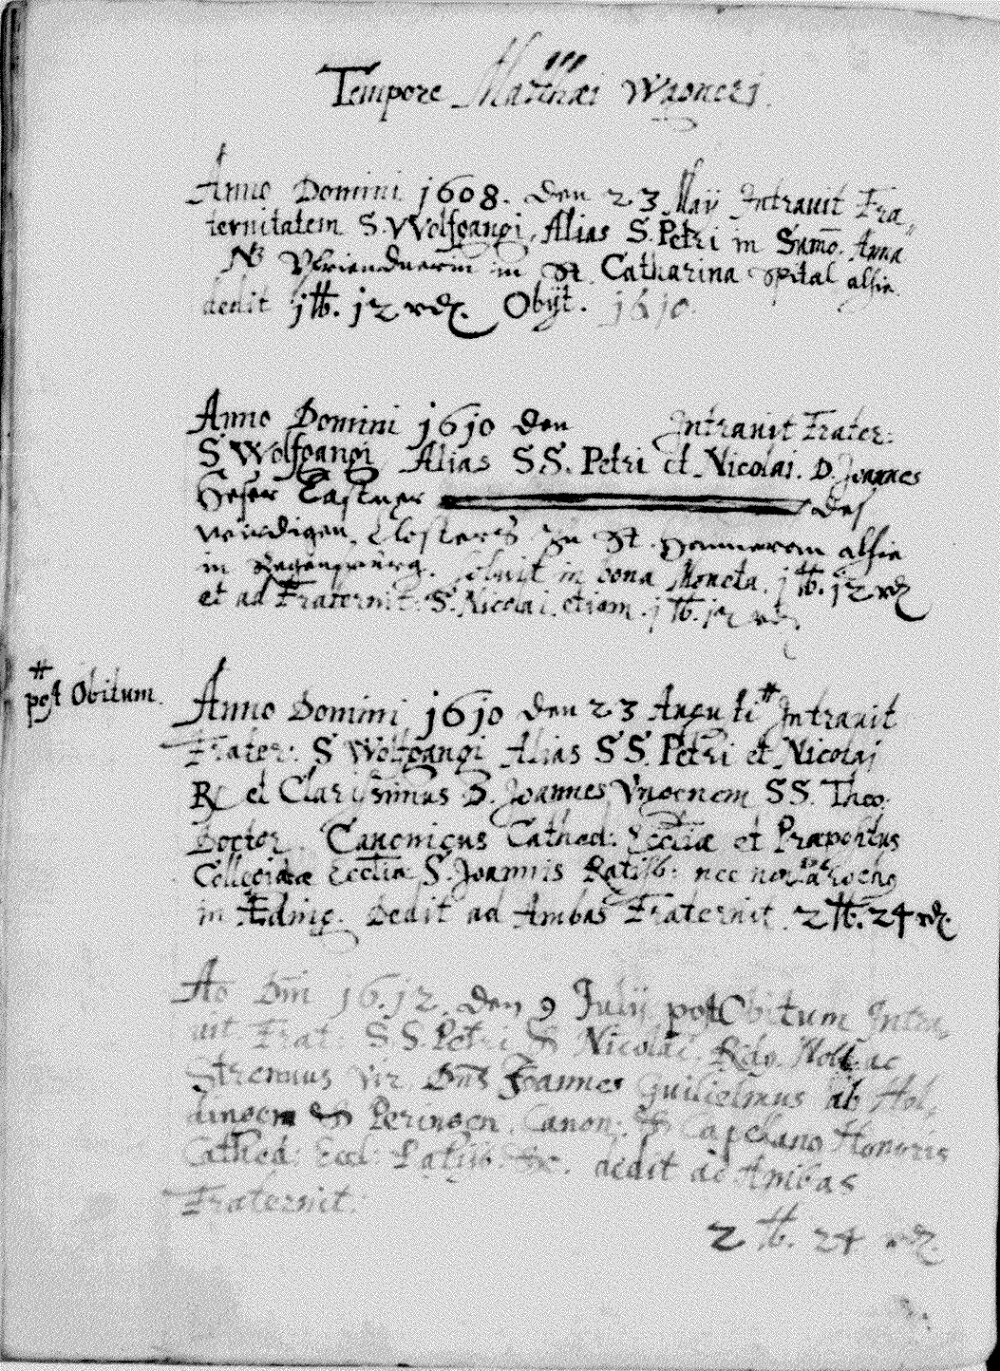 Tempore Matthæi Wagneri.
Anno Domini 1608. den 23 Maÿ Intrauit Fra,,
ternitatem S. Wolfgangi, Alias S. Petri in Anna
in St. Catharina Spital alhie
dedit 1 ℔. 12 rd. Obijt. 1610.
Anno Domini 1610 den Intrauit Frater:
S. Wolfgangi Alias SS. Petri et Nicolai. D. Joannes
Castner des
würdigen Closters zu St. Haimeram alhie
in Regenspurg. soluit in bona Moneta. 1 ℔. 12 rd
et ad Fraternit: S. Nicolai etiam. 1 ℔. 12 rd.
# post Obitum.
Anno Domini 1610 den 23 Augusti # Intrauit
Frater: S Wolfgangi Alias SS. Petri et Nicolai
R. et Clarissimus D. Joannes SS. Theo.
Doctor, Canonicus Cathed: Eccliæ et Præpositus
Collegiatæ Eccliæ S. Joannis Ratisb: nec non Parochus
in Dedit ad Ambas Fraternit. 2 ℔. 24 rd.
Ao Dni 1612. den 9 Julij post Obitum Intra,,
uit Frat: S.S. Petri & Nicolai. Rdo. Nob. ac
Strenuus Vir Dns Joannes Guilielmus ab Hol,,
dingen & Canon: & Capellang Honoris
Cathed: Eccl: Ratisb. &c. dedit ad Ambas
Fraternit:
2 ℔. 24 rd.